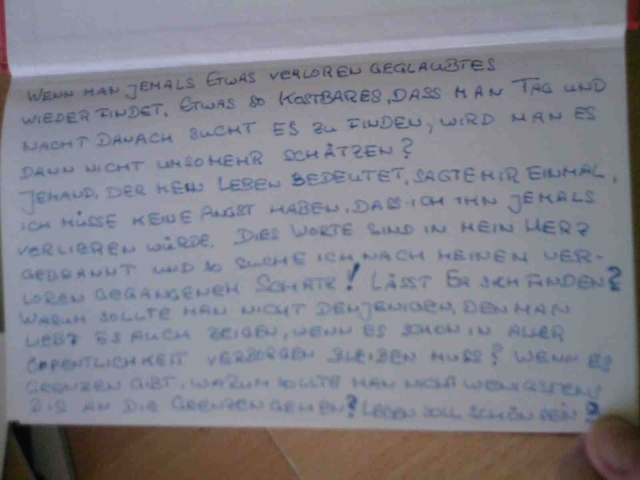 WENN MAN JEMALS ETWAS VERLOREN GEGLAUBTES
WIEDER FINDET, ETWAS SO KOSTBARES, DASS MAN TAG UND
NACHT DANACH SUCHT ES ZU FINDEN, WIRD MAN ES
DANN NICHT UMSOMEHR SCHÄTZEN?
JEMAND, DER MEIN LEBEN BEDEUTET, SAGTE MIR EINMAL,
ICH MÜSSE KEINE ANGST HABEN, DASS ICH IHN JEMALS
VERLIEREN WÜRDE. DIES WORTE SIND IN MEIN HERZ
GEBRANNT UND SO SUCHE ICH NACH MEINEN VER-
LOREN GEGANGENEN SCHATZ! LÄSST ER SICH FINDEN?
WARUM SOLLTE MAN NICHT DEMJENIGEN, DEN MAN
LIEBT ES AUCH ZEIGEN, WENN ES SCHON IN ALLER
ÖFFENTLICHKEIT VERBORGEN BLEIBEN MUSS? WENN ES
GRENZEN GIBT, WARUM SOLLTE MAN NICHT WENIGSTENS
BIS AN DIE GRENZEN GEHEN? LEBEN SOLL SCHÖN SEIN?